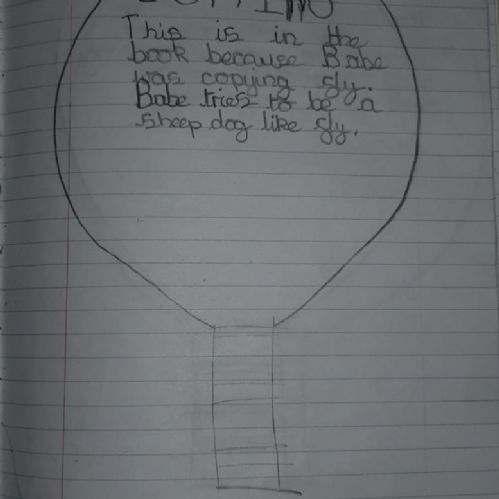 This is in the
book because Babe
was copying fly.
Babe tries to be a
sheep dog like fly.